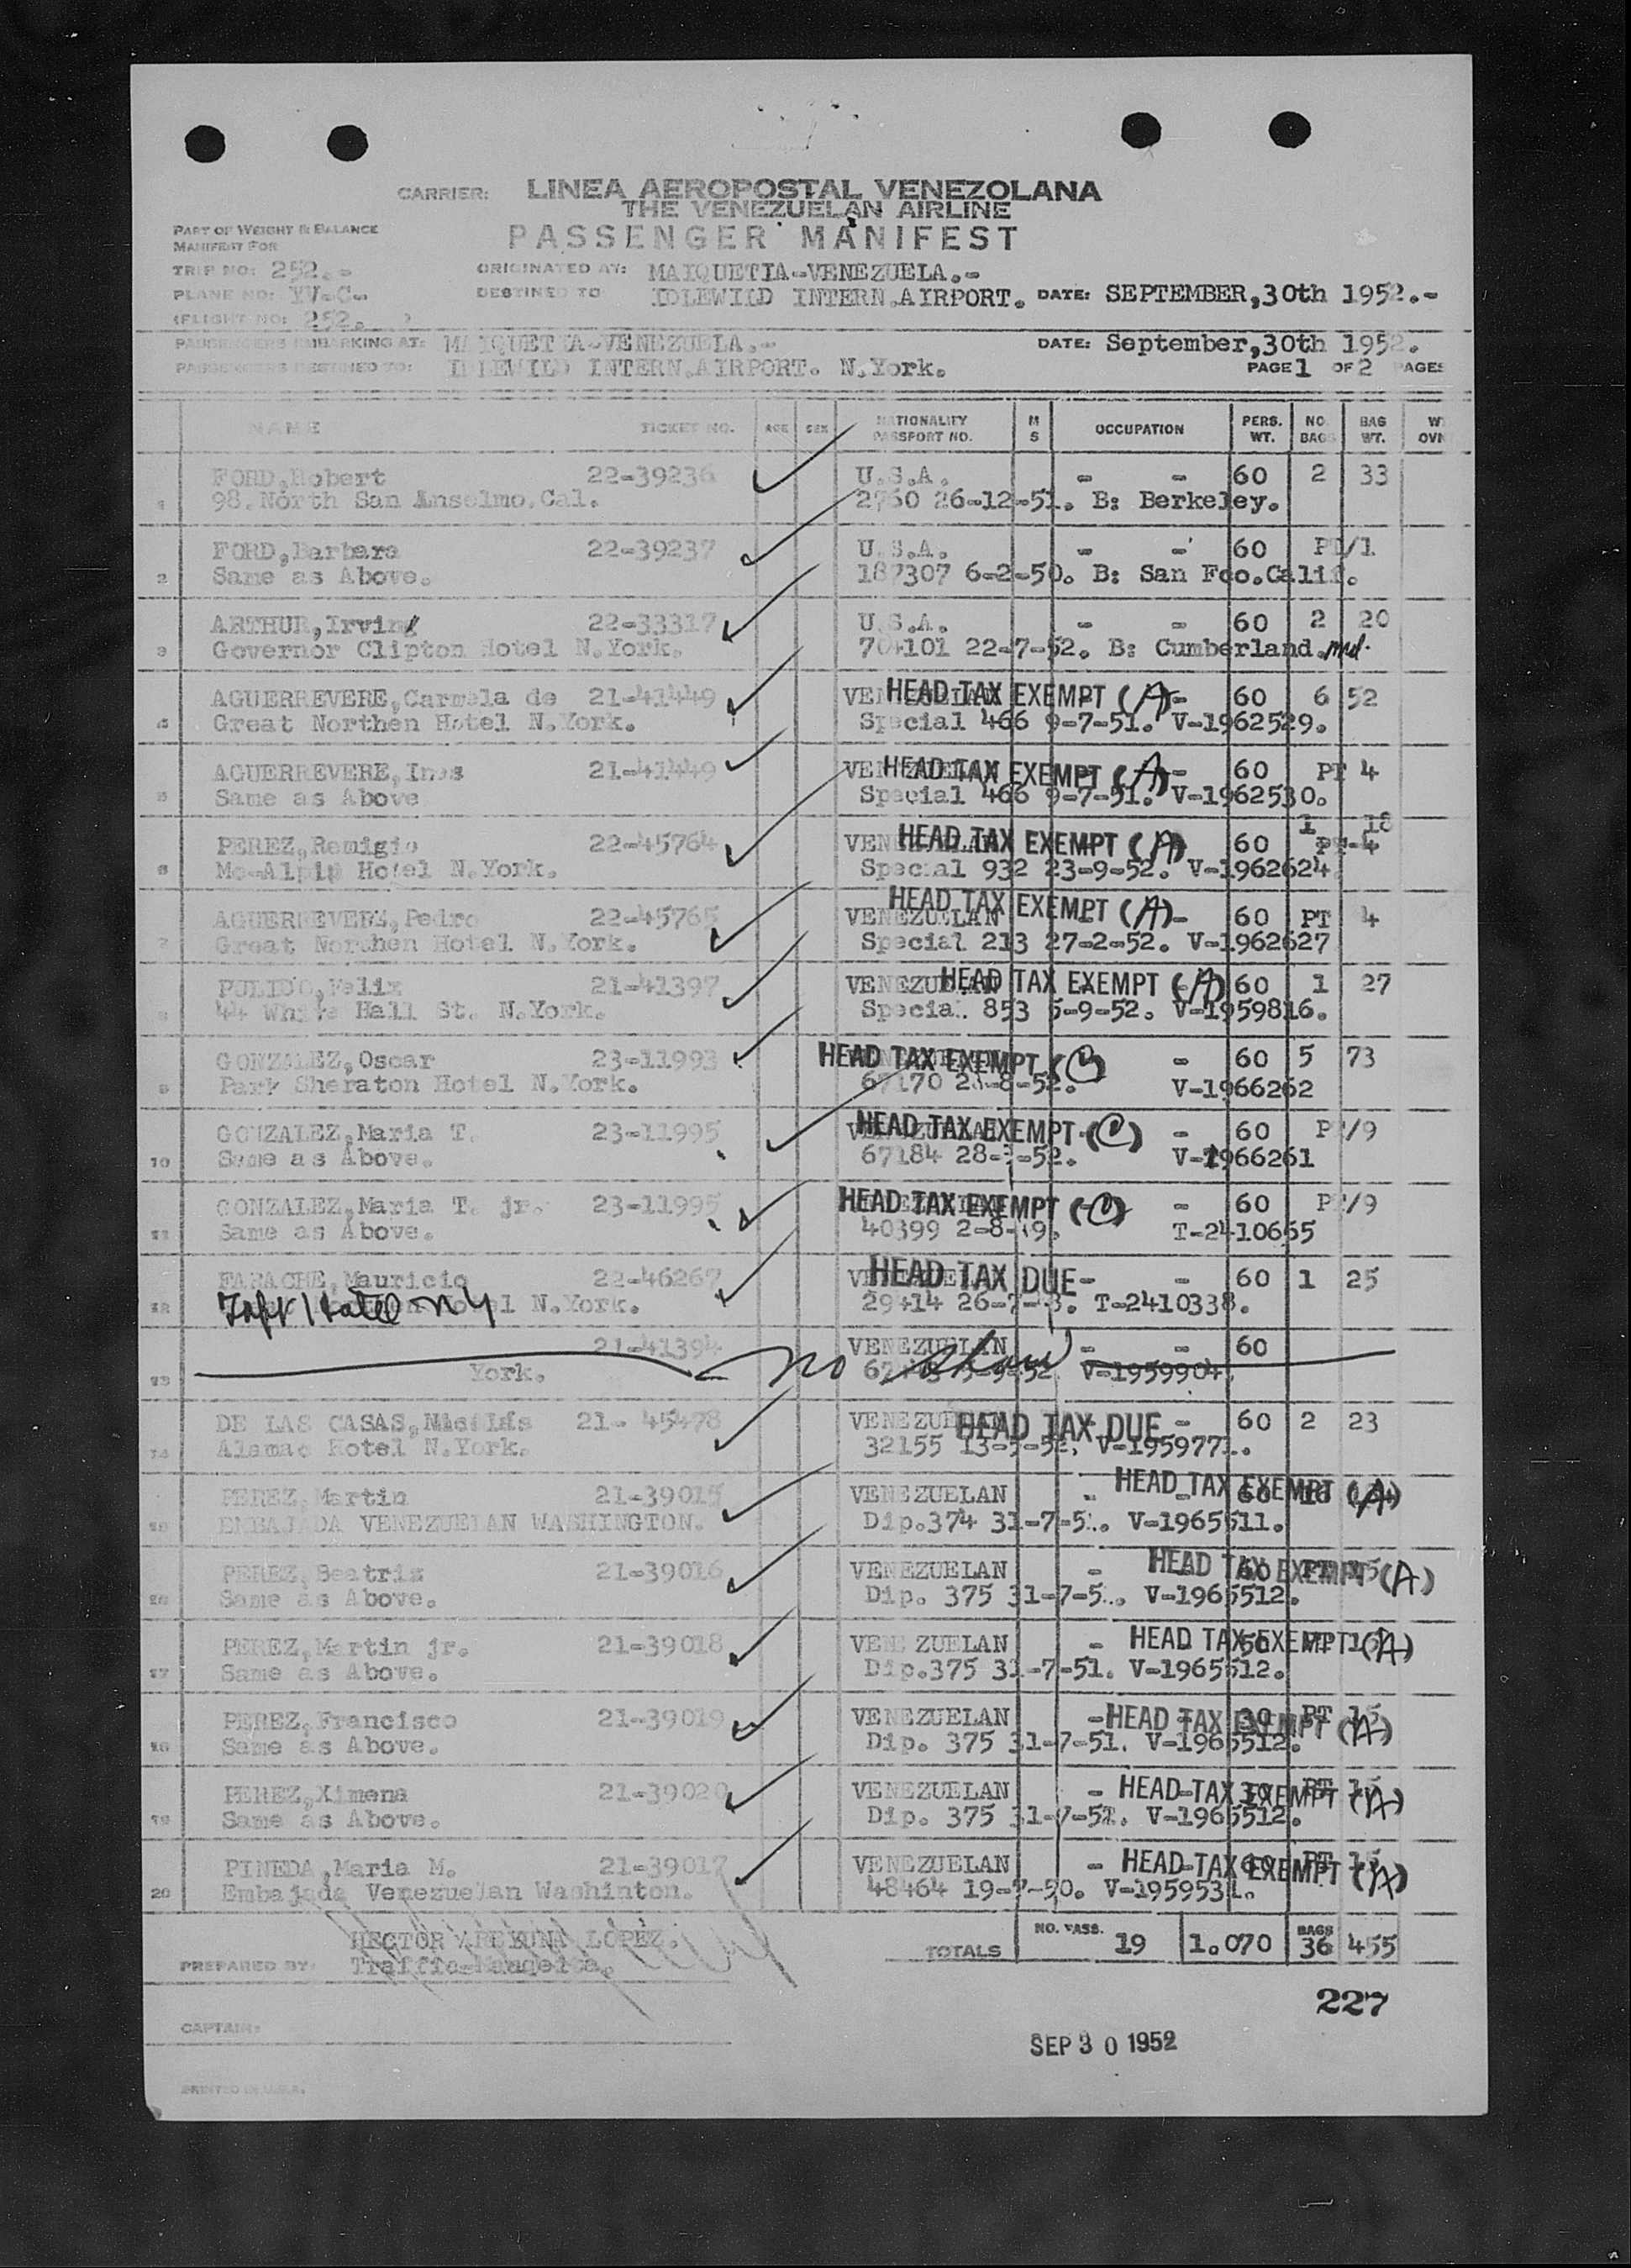 CARRIER: LINEA AEROPOSTAL VENEZOLANA
THE VENEZUELAN AIRLINE
PART OF WEIGHT & BALANCE
MANIFEST FOR
PASSENGER MANIFEST
TRIP NO: 252.- ORIGINATED AT: MAIQUETIA-VENEZUELA.-
PLANE NO: YV-C- DESTINED TO IDLEWILD INTERN.AIRPORT. DATE: SEPTEMBER,30th 1952.-
(FLIGHT NO: 252. )
PASSENGERS EMBARKING AT: MAIQUETIA-VENEZUELA.- DATE: September,30th 1952.
PASSENGERS DESTINED TO: IDLEWILD INTERN.AIRPORT. N.York. PAGE 1 OF 2 PAGES
NAME TICKET NO. AGE SEX NATIONALITY PASSPORT NO. M S OCCUPATION PERS. WT. NO. BAGS BAG WT. W OVN
FORD,Robert 22-39236 U.S.A. - - 60 2 33
1 98.North San Anselmo.Cal. 2760 26-12-51. B: Berkeley.
FORD,Barbara 22-39237 U.S.A. - - 60 PT/1
2 Same as Above. 187307 6-2-50. B: San Fco.Calif.
ARTHUR,Irving 22-33317 U.S.A. - - 60 2 20
3 Governor Clipton Hotel N.York. 704101 22-7-52. B: Cumberland.md.
AGUERREVERE,Carmela de 21-41449 HEAD TAX EXEMPT (A) - 60 6 52
4 Great Northen Hotel N.York. Special 466 9-7-51. V-1962529.
AGUERREVERE,Ines 21-41449 HEAD TAX EXEMPT (A) - 60 PT 4
5 Same as Above Special 466 9-7-51. V-1962530.
1 18
PEREZ,Remigio 22-45764 HEAD TAX EXEMPT (A) 60 PT-4
6 Mc-Alpip Hotel N.York. Special 932 23-9-52. V-1962624.
AGUERREVERE,Pedro 22-45765 VENEZUELAN HEAD TAX EXEMPT (A) - 60 PT 4
7 Great Northen Hotel N.York. Special 213 27-2-52. V-1962627
PULIDO,Felix 21-41397 VENEZUELAN HEAD TAX EXEMPT (A) 60 1 27
8 44 White Hall St. N.York. Special 853 5-9-52. V-1959816.
GONZALEZ,Oscar 23-11993 HEAD TAX EXEMPT (C) - 60 5 73
9 Park Sheraton Hotel N.York. 67170 28-8-52. V-1966262
GONZALEZ,Maria T. 23-11995 HEAD TAX EXEMPT (C) - 60 PT/9
10 Same as Above. 67184 V-1966261
GONZALEZ,Maria T. jr. 23-11995 HEAD TAX EXEMPT (C) - 60 PT/9
11 Same as Above. 40399 T-2410665
FARACHE,Mauricio 22-46267 HEAD TAX DUE - - 60 1 25
12 Taft Hotel NY N.York. 29414 T-2410338.
21-41394 VENEZUELAN - - 60
13 York. no show V-1959904.
DE LAS CASAS, 21- 45478 HEAD TAX DUE - 60 2 23
14 Alamac Hotel N.York. 32155 V-1959771.
PEREZ,Martin 21-39015 VENEZUELAN - HEAD TAX EXEMPT (A)
15 EMBAJADA VENEZUELAN WASHINGTON. Dip.374 V-1965511.
PEREZ,Beatriz 21-39016 VENEZUELAN - HEAD TAX EXEMPT (A)
16 Same as Above. Dip. 375 V-1965512.
PEREZ,Martin jr. 21-39018 VENEZUELAN - HEAD TAX EXEMPT (A)
17 Same as Above. Dip.375 31-7-51. V-1965512.
PEREZ,Francisco 21-39019 VENEZUELAN - HEAD TAX EXEMPT (A)
18 Same as Above. Dip. 375 31-7-51. V-1965512.
PEREZ,Ximena 21-39020 VENEZUELAN - HEAD TAX EXEMPT (A)
19 Same as Above. Dip. 375 V-1965512.
PINEDA,Maria M. 21-39017 VENEZUELAN - HEAD TAX EXEMPT (A)
20 Embajada Venezuelan Washinton. 48464 19-7-50. V-1959531.
HECTOR LOPEZ.
PREPARED BY: TOTALS NO. PASS. 19 1.070 BAGS 36 455
227
CAPTAIN:
SEP 30 1952
PRINTED IN U.S.A.